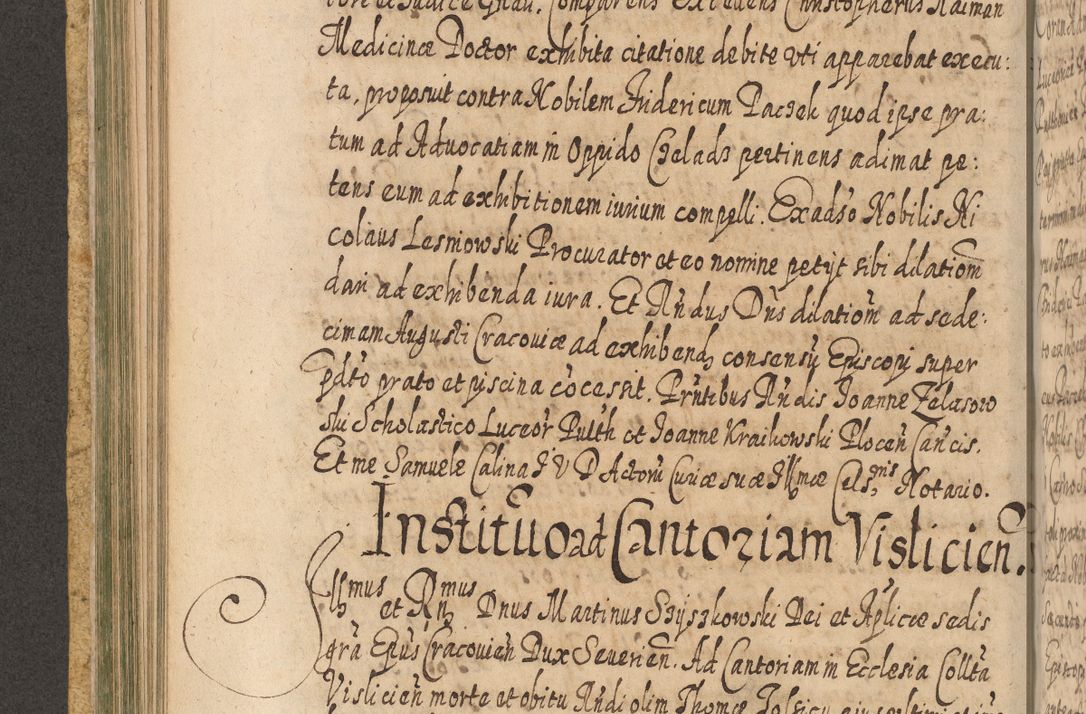 tore et Judice Gnāli. Comparens Excellens Christopherus Naiman
Medicinæ Doctor exhibita citatione debite uti apparebat execu:
ta, proposuit contra Nobilem Fridericum Paczek quod ipse pra:
tum ad Advocatiam in Oppido Czeladz pertinens adimat pe:
tens eum ad exhibitionem iurium compelli. Ex adso Nobilis Ni
colaus Lesniowski Procurator et eo nomine petijt sibi dilationē
dari ad exhibenda iura. Et Rñdus Dñs dilationē ad sede:
cimam Augusti Cracoviæ ad exhibendū consensū Episcopi super
pdto prato et piscina cōcessit. Prñtibus Rñdis Joanne Zelasow
ski Scholastico Luceoř Pulth et Joanne Kraikowski Plocen̄ Can̄cis.
Et me Samuele Calina J V D Actorū Curiæ suæ Illmæ Cels:nis Notario.
Institūo ad Cantoriam Visliciēn.
Illmus et Rñmus Dnus Martinus Szyszkowski Dei et Aplicæ sedis
grā Epūs Cracovien̄ Dux Severien̄. Ad Cantoriam in Ecclesia Collta
Vislicien̄ morte et obitu Rñdi olim Thomæ